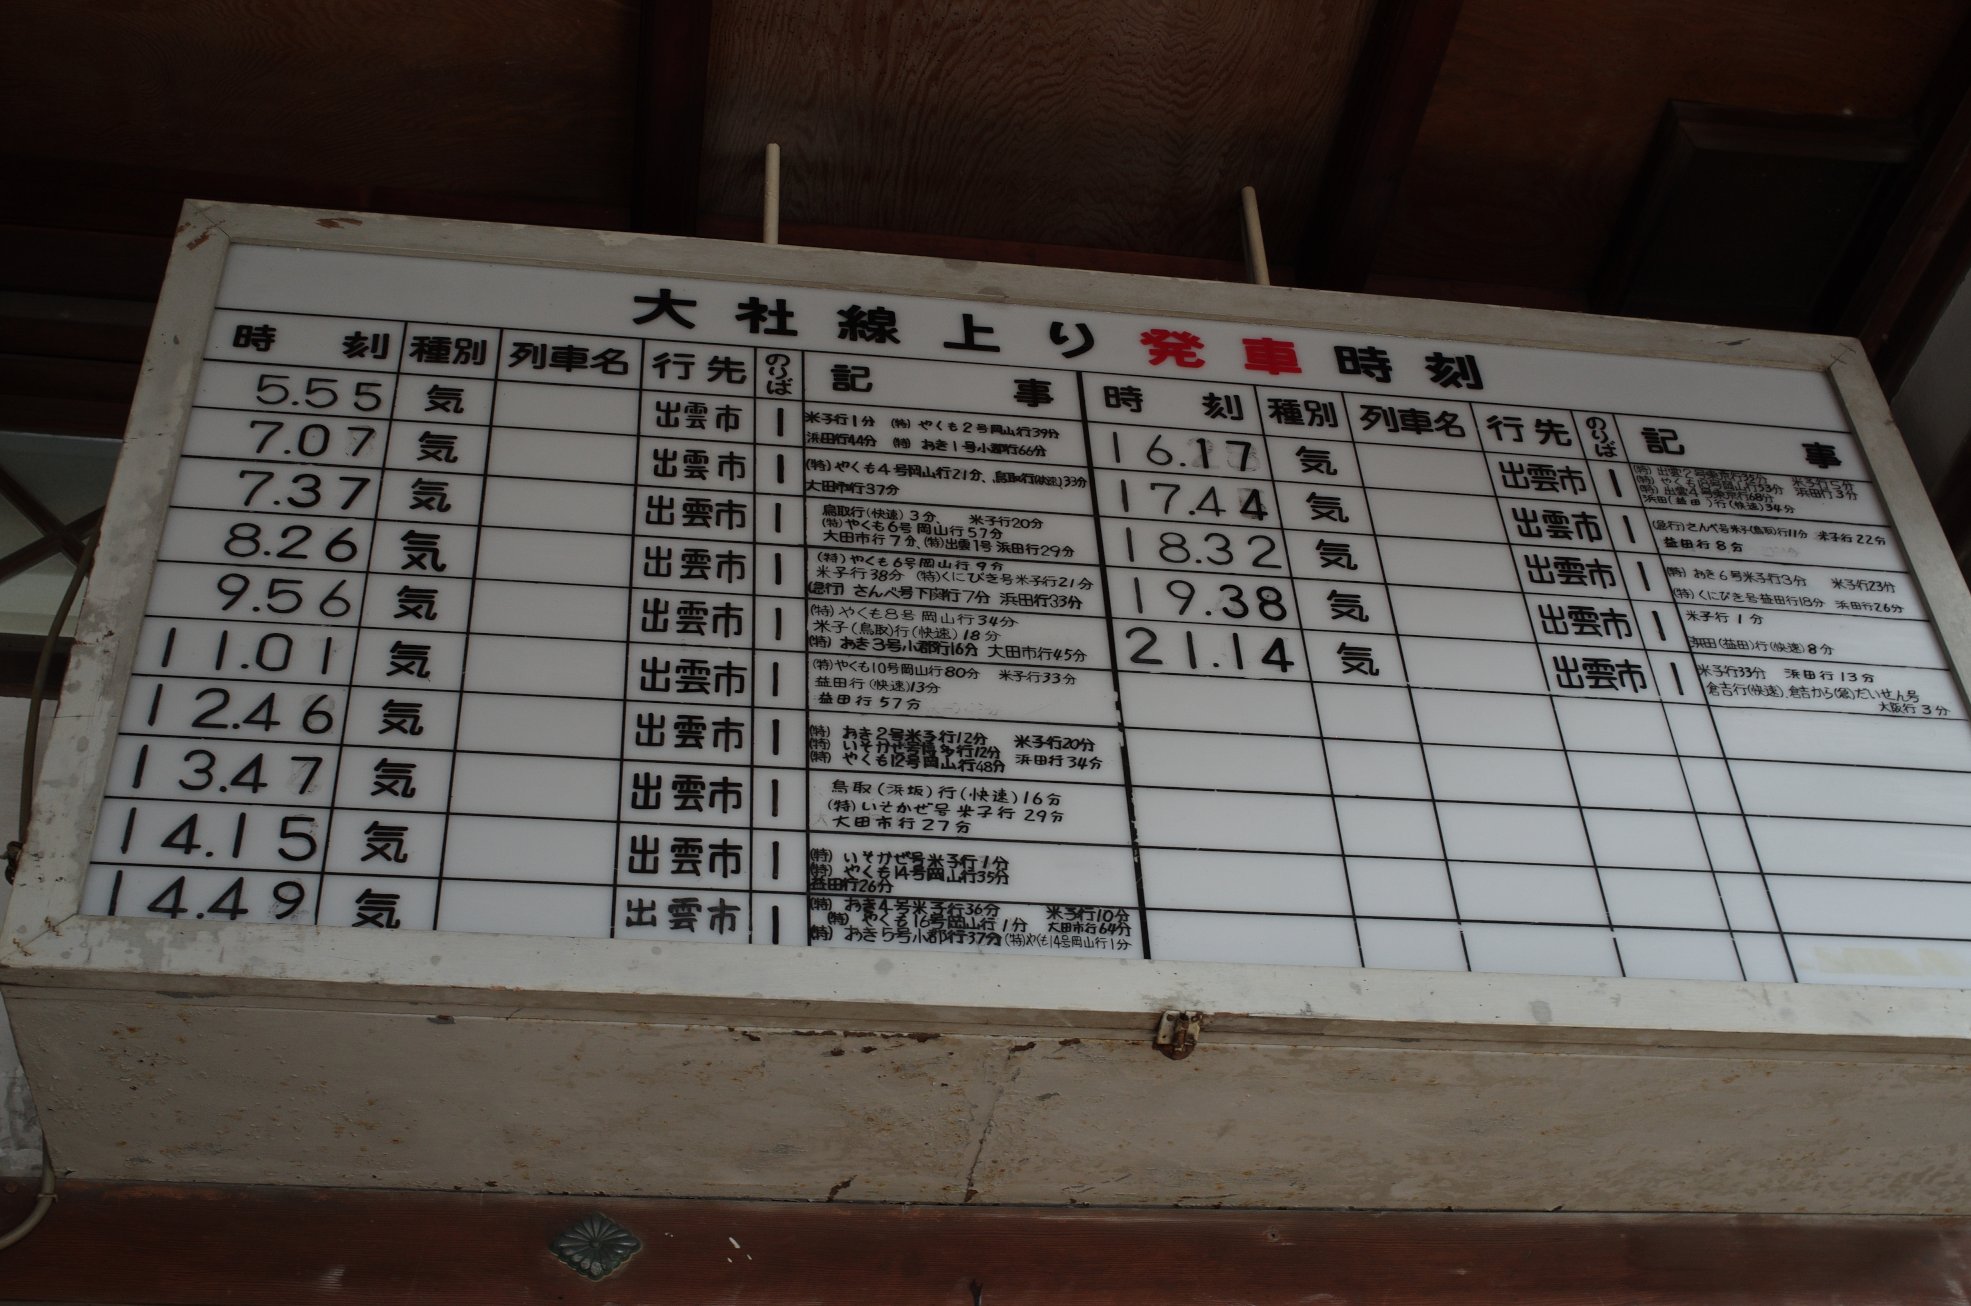 大社線上り発車時刻
時刻 種別 列車名 行先 のりば 記事
5.55 気 出雲市 1 米子行1分 (特)やくも2号岡山行39分
浜田行44分 (特)おき1号小郡行66分
7.07 気 出雲市 1 (特)やくも4号岡山行21分、鳥取行(快速)33分
大田市行37分
7.37 気 出雲市 1 鳥取行(快速)3分、 米子行20分
(特)やくも6号岡山行57分
大田市行7分、(特)出雲1号浜田行29分
8.26 気 出雲市 1 (特)やくも6号岡山行9分
米子行38分 (特)くにびき号米子行21分
(急行)さんべ号下関行7分 浜田行33分
9.56 気 出雲市 1 (特)やくも8号岡山行34分
米子(鳥取)行(快速)18分
(特)おき3号小郡行16分 大田市行45分
11.01 気 出雲市 1 (特)やくも10号岡山行80分 米子行33分
益田行(快速)13分
益田行57分
12.46 気 出雲市 1 (特)おき2号米子行12分 米子行20分
(特)いそかぜ号博多行12分
(特)やくも12号岡山行48分 浜田行34分
13.47 気 出雲市 1 鳥取(浜坂)行(快速)16分
(特)いそかぜ号米子行29分
大田市行27分
14.15 気 出雲市 1 (特)いそかぜ号米子行1分
(特)やくも14号岡山行35分
益田行26分
14.49 気 出雲市 1 (特)おき4号米子行36分 米子行10分
(特)やくも16号岡山行1分 大田市行64分
(特)おき5号小郡行37分(特)やくも14号岡山行1分
時刻 種別 列車名 行先 のりば 記事
16.17 気 出雲市 1 (特)出雲2号東京行32分 米子行5分
(特)やくも 号岡山行53分 浜田行3分
(特)出雲4号東京行68分
浜田(益田)行(快速)34分
17.44 気 出雲市 1 (急行)さんべ号米子(鳥取)行11分 米子行22分
益田行8分
18.32 気 出雲市 1 (特)おき6号米子行3分 米子行23分
(特)くにびき号益田行18分 浜田行26分
19.38 気 出雲市 1 米子行1分
浜田(益田)行(快速)8分
21.14 気 出雲市 1 米子行33分 浜田行13分
倉吉行(快速)、倉吉から(急)だいせん号
大阪行3分